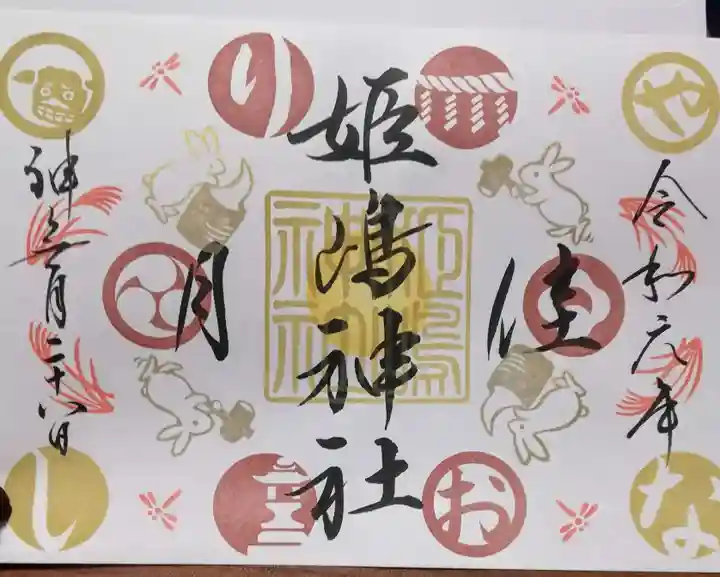 令和元年
佳
姫嶋神社
月
神無月二十八日
や
の
お
し
な
姫嶋
神社